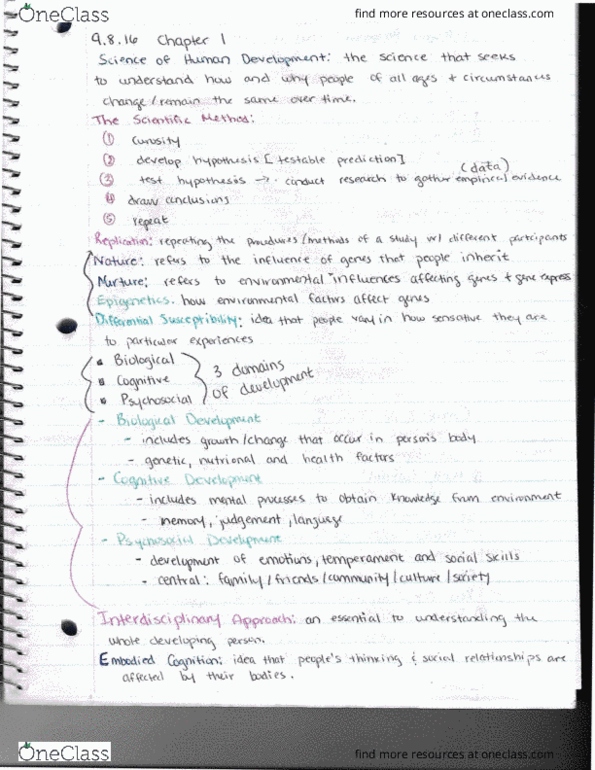 OneClass
find more resources at oneclass.com
9.8.16 Chapter 1
Science of Human Development: the science that seeks
to understand how and why people of all ages + circumstances
change/remain the same over time.
The Scientific Method:
① curosity
② develop hypothesis [testable prediction]
(data)
③ test hypothesis → conduct research to gather empirical evidence
④ draw conclusions
⑤ repeat
Replication: repeating the procedures/methods of a study w/ different participants
Nature: refers to the influence of genes that people inherit
Nurture: refers to environmental influences affecting genes + gene express
Epigenetics. how environmental factors affect genes
Differential Susceptibility: idea that people vary in how sensative they are
to particular experiences
• Biological
• Cognitive
• Psychosocial
3 domains
of development
- Biological Development
- includes growth/change that occur in person's body
- genetic, nutrional and health factors
- Cognitive Development
- includes mental processes to obtain knowledge from environment
- memory, judgement, language
- Psychosocial Development
- development of emotions, temperament and social skills
- central: family/friends/community/culture/society
Interdisciplinary Approach: an essential to understanding the
whole developing person.
Embodied Cognition: idea that people's thinking & social relationships are
affected by their bodies.
OneClass
find more resources at oneclass.com